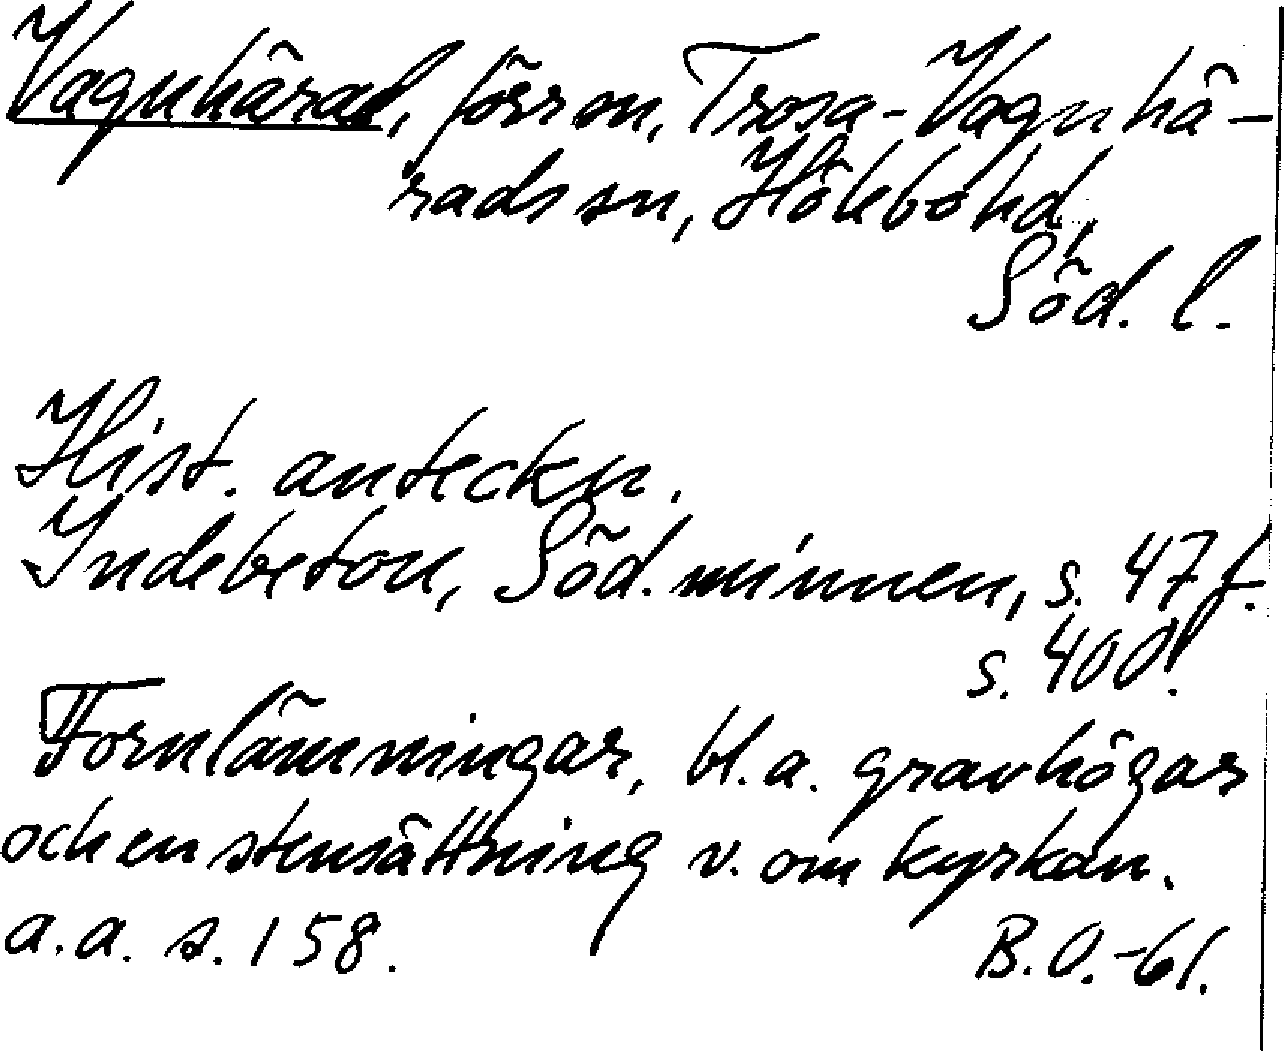 Vagnhärad, förr sn, Trosa-Vagnhä-
rads sn, Hölebo hd,
Söd. l.
Hist. anteckn.
Indebetou, Söd. minnen, s. 47 f.
s. 400!
Fornlämningar, bl.a. gravhögar
och en stensättning v. om kyrkan.
a.a. s. 158.
B.O.-61.